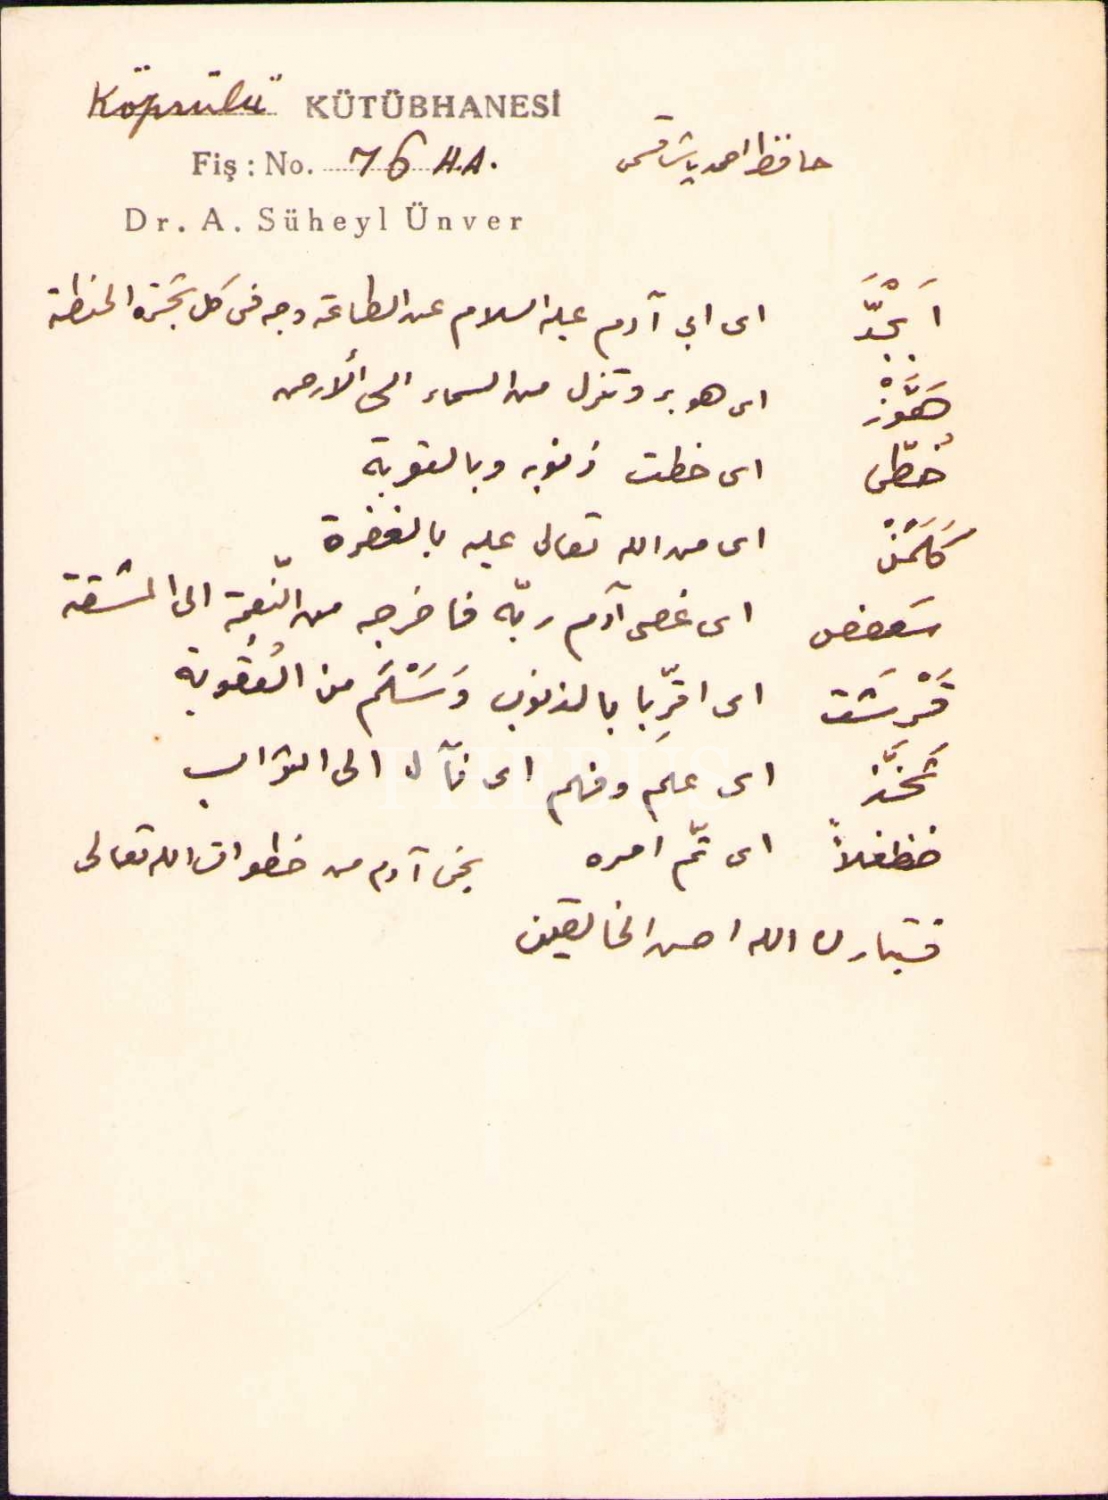 Köprülü KÜTÜBHANESİ
Fiş : No. 76 H.A.
حافظ احمد پاشا قسمى
Dr. A. Süheyl Ünver
اَبْجَدّ اى ابى آدم عليه السلام عن الطاعة وجه فى كل شَجَرة الحنطة
هَوَّزْ اى هو بر وتنزل من السماء الى الأرض
حُطّى اى حطت ذنوبه وبالتوبة
كَلَمَنْ اى من الله تعالى عليه بالمغفرة
سَعفص اى عصى آدم ربّه فاخرجه من النّعمة الى المشقة
قَرْشَت اى اقرّبا بالذنوب وَسَلَم من العُقُوبة
ثَخّذ اى علم وفهم اى فآل الى التواب
ضظغلاً اى تمّ امره بخى آدم من خطوات الله تعالى
فتبارك الله احسن الخالقين
THEBUS